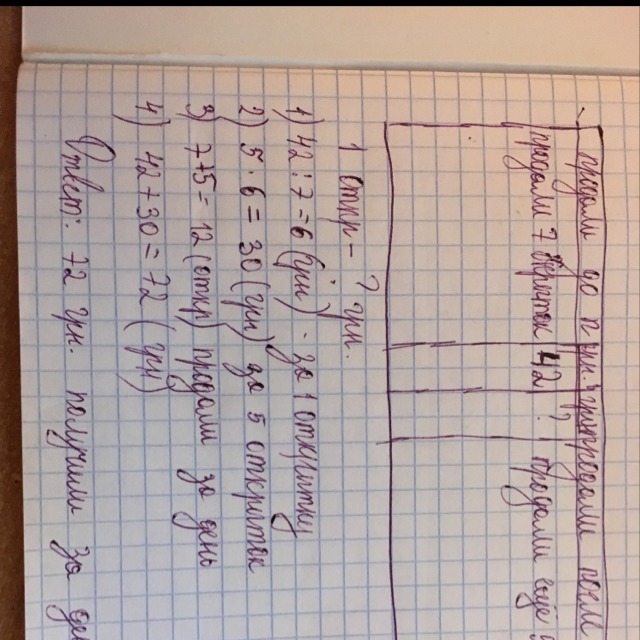 продали до п грн. грн продали после
продали 7 открыток 42 ? продали еще
1 откр - ? грн.
1) 42 : 7 = 6 (грн) - за 1 открытку
2) 5 · 6 = 30 (грн) за 5 открыток
3) 7 + 5 = 12 (откр) продали за день
4) 42 + 30 = 72 (грн)
Ответ: 72 грн. получили за